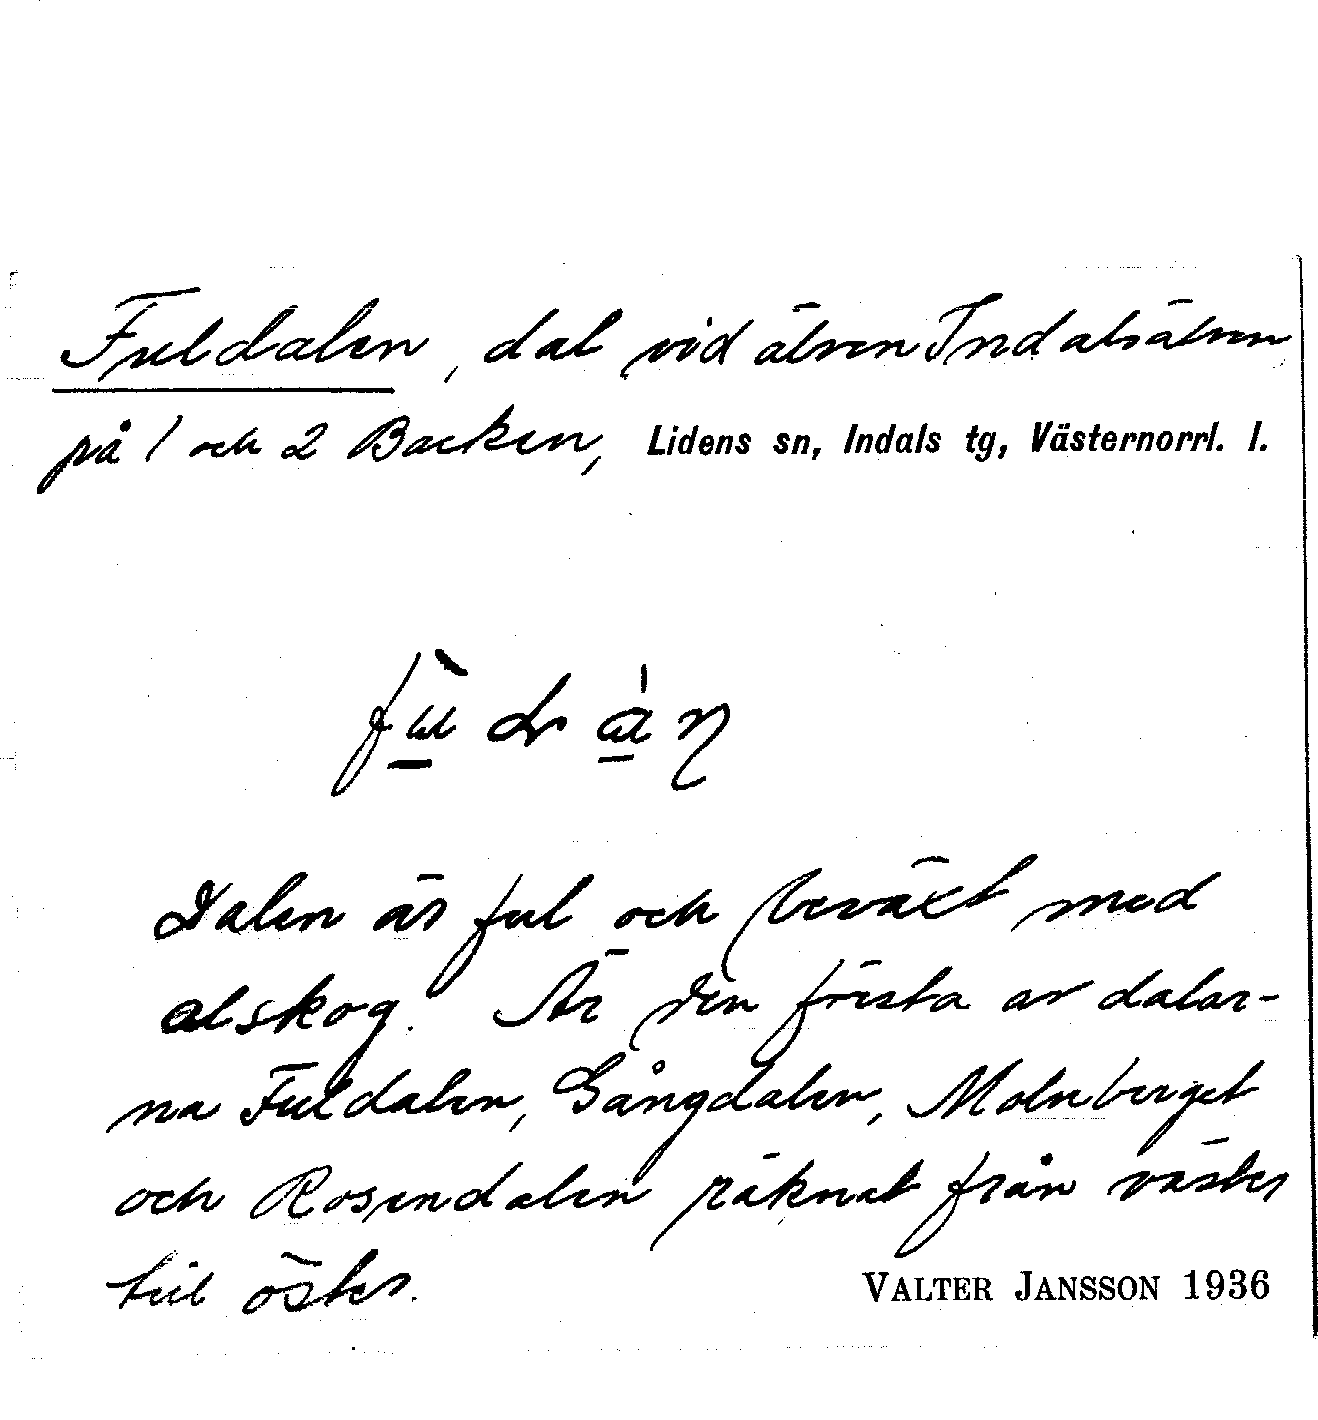 Fuldalen, dal vid älven Indalsälven
på 1 och 2 Backen, Lidens sn, Indals tg, Västernorrl. l.
Dalen är ful och beväxt med
alskog. Är den första av dalar-
na Fuldalen, Gångdalen, Molnberget
och Rosendalen räknat från väster
till öster.
VALTER JANSSON 1936